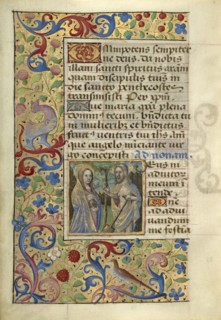 Omnipotens sempiter
ne deus da nobis
illam sancti spiritus gratiam
quam discipulis tuis in
die sancto penthecostes
transmisisti Per xpm
Aue maria gra plena
dominus tecum bndicta tu
in mulieribz et bndictus
fructus ventris tui ihs
que angelo nunciante
concepisti ad nonam.
Deus in
adiutor
meum i
tende
Dne
ad adiu
uandum
me festia